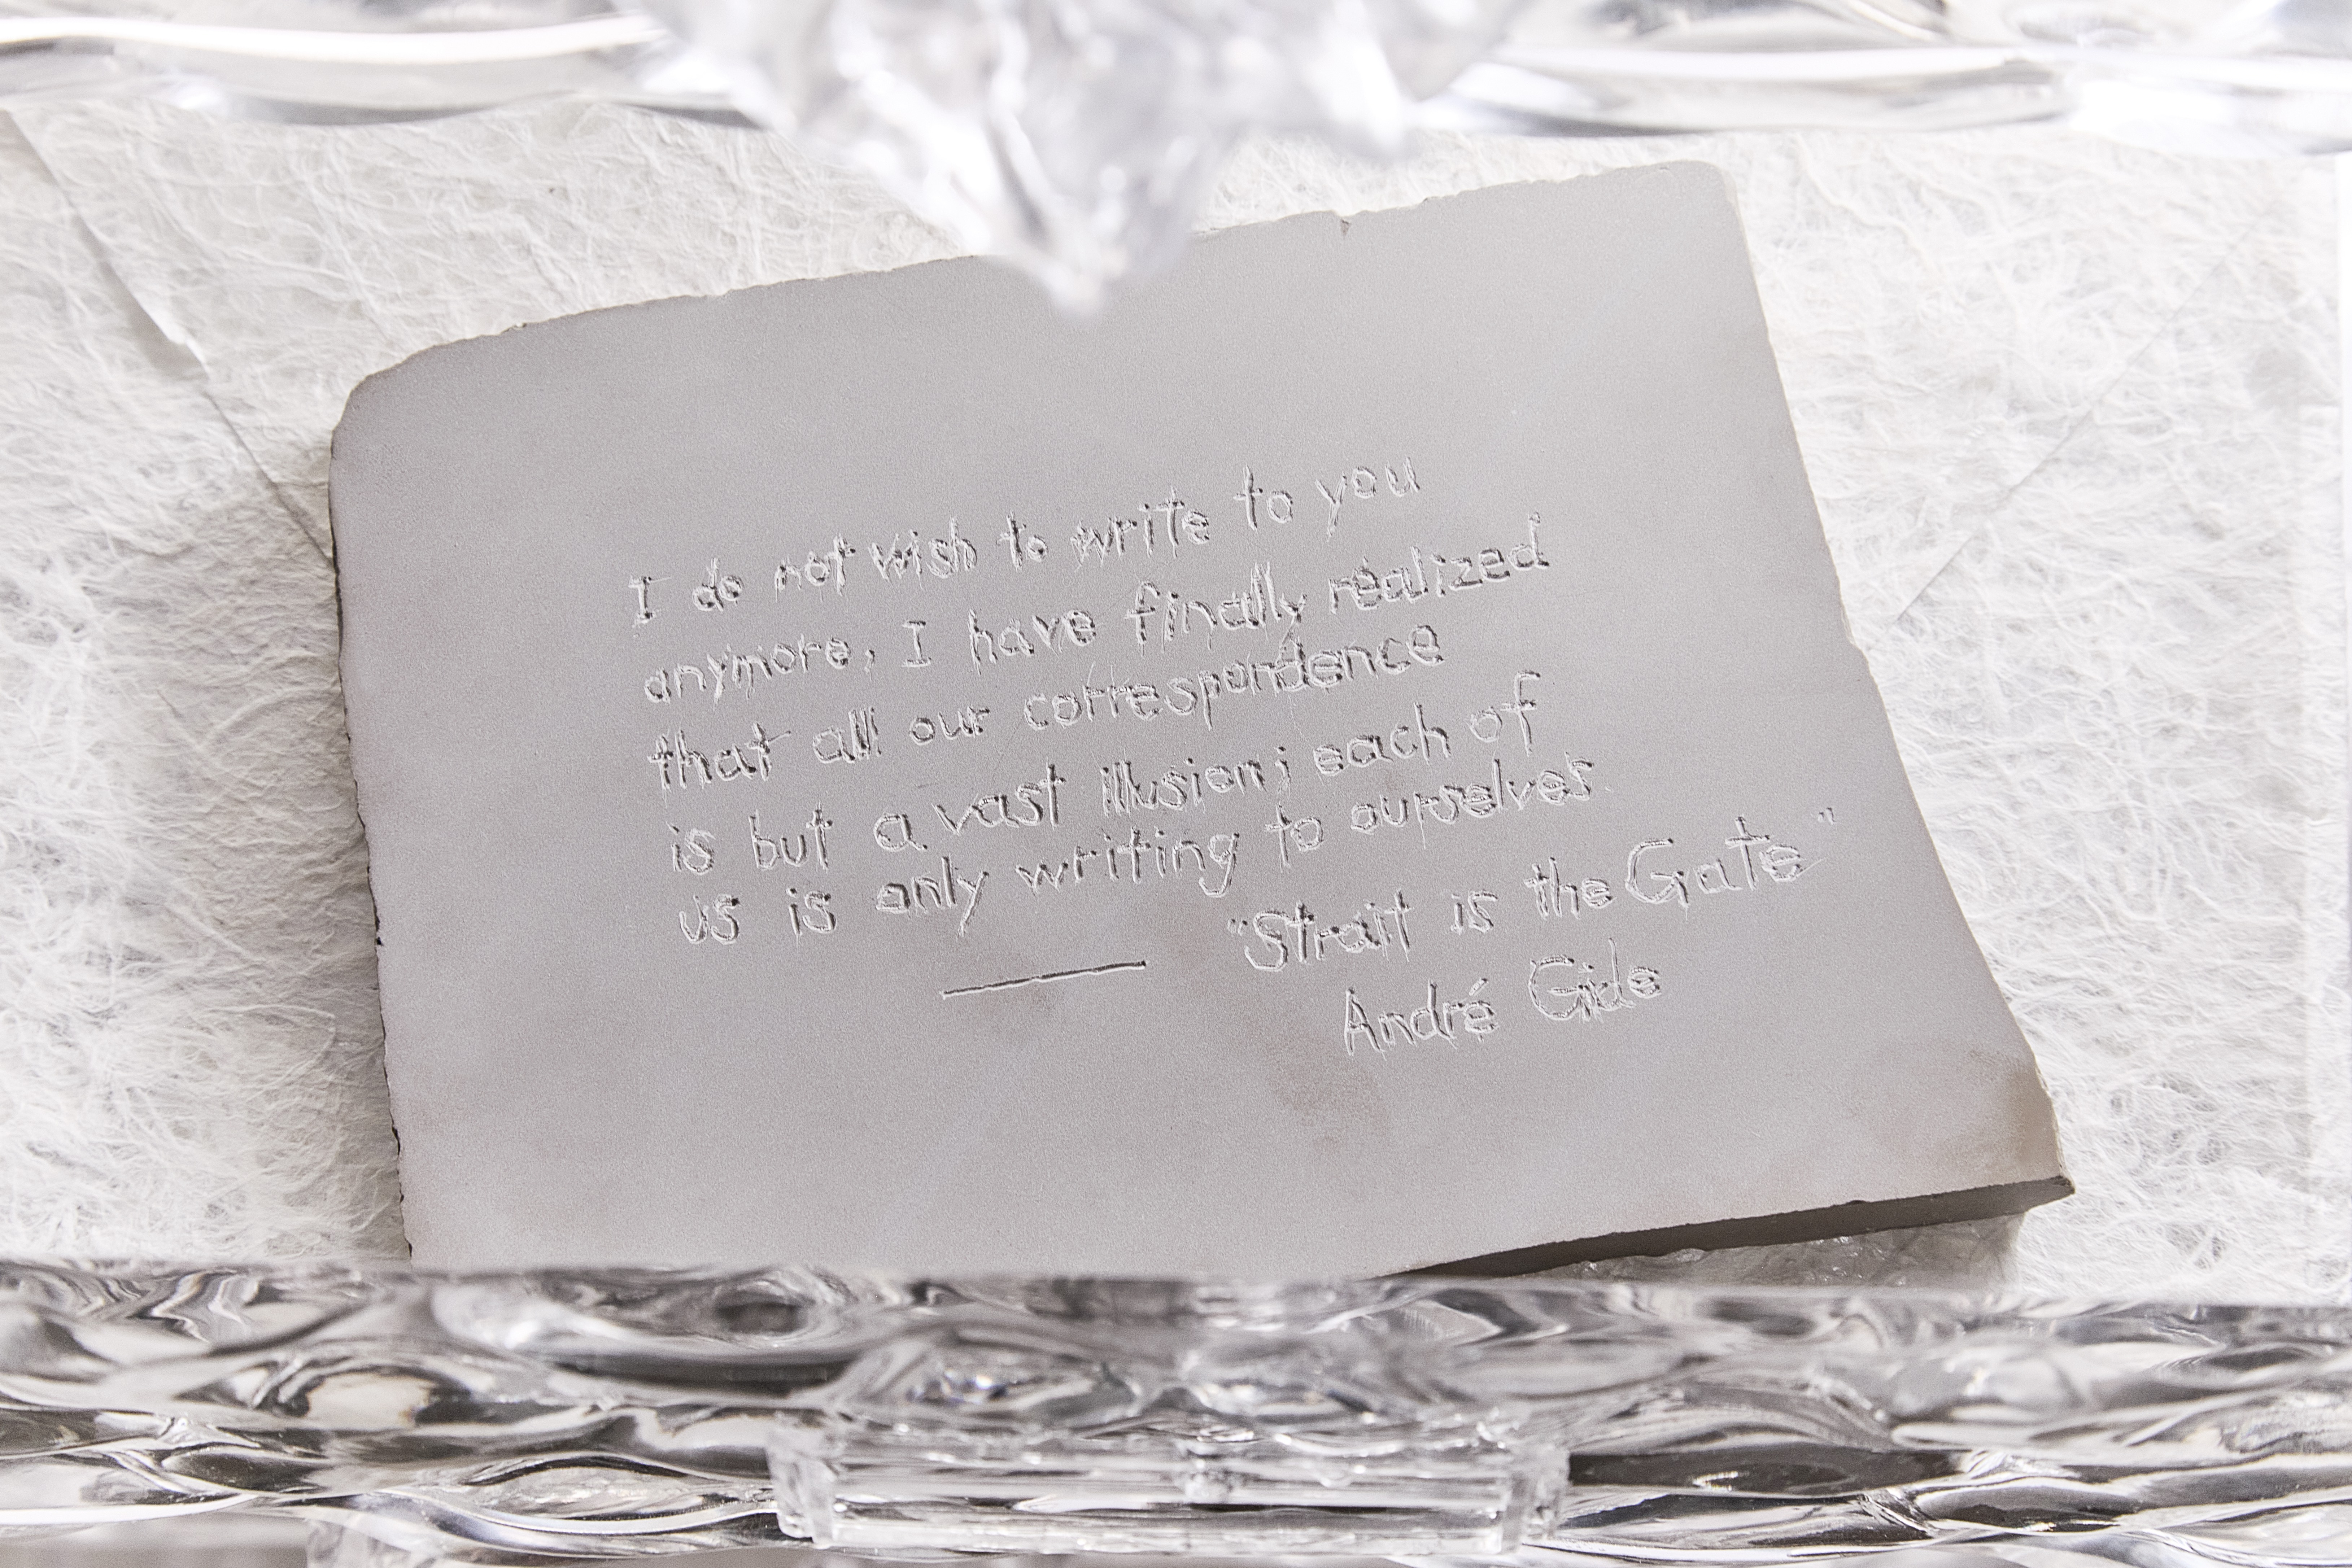 I do not wish to write to you
anymore, I have finally realized
that all our correspondence
is but a vast illusion; each of
us is only writing to ourselves.
"Strait is the Gate"
André Gide